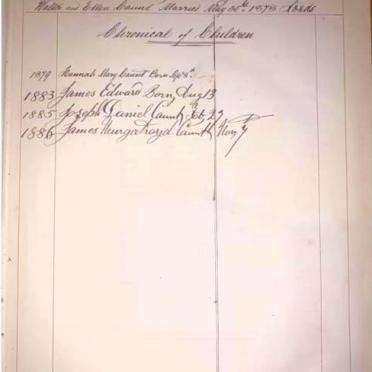 and Ellen Caunt Married May 26th 1878 Leeds
Chronical of Children
1879 Hannah Mary Caunt Born
1883 James Edward Born Aug 13
1885 Joseph Daniel Caunt Feb 27
1886 James Murgatroyd Caunt Nov